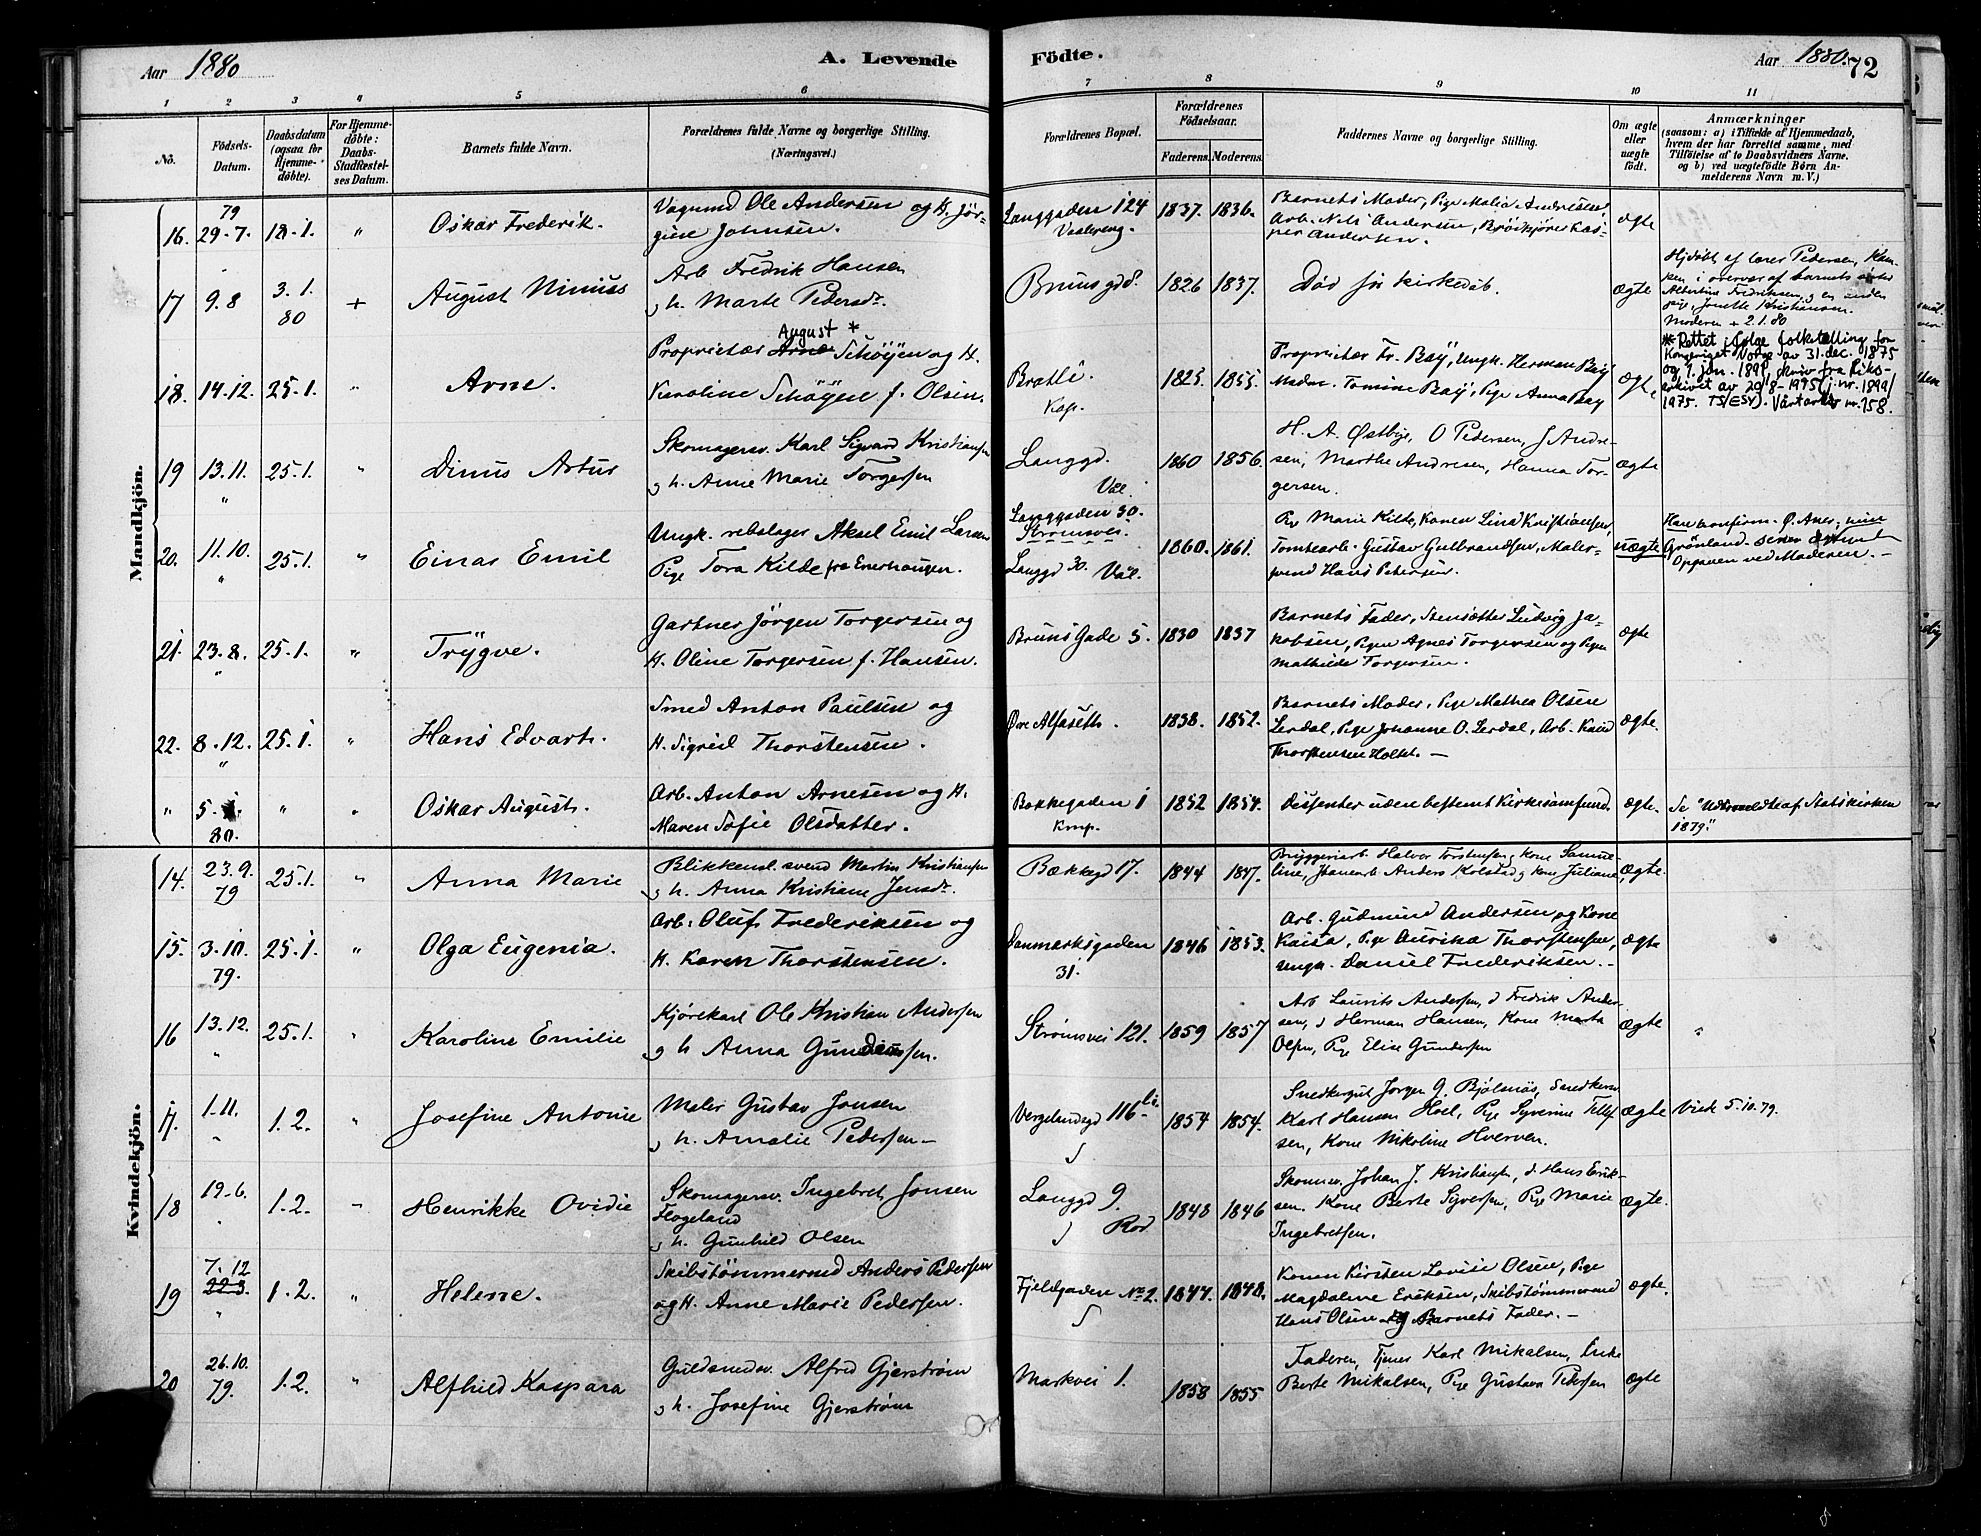 Aar 1880
A. Levende
Födte.
Aar 1880.
72
1 2 3 4 5 6 7 8 9 10 11
No.
Födsels-Datum.
Daabsdatum (ogsaa for Hjemme-döbte).
For Hjemme-döbte: Daabs-Stadfæstel-ses Datum.
Barnets fulde Navn.
Forældrenes fulde Navne og borgerlige Stilling. (Næringsvei.)
Forældrenes Bopæl.
Forældrenes Födselsaar.
Faderens. Moderens.
Faddernes Navne og borgerlige Stilling.
Om ægte eller uægte födt.
Anmærkninger
(saasom: a) i Tilfælde af Hjemmedaab,
hvem der har forrettet samme, med
Tilföielse af to Daabsvidners Navne.
og b) ved uægtefödte Börn An-
melderens Navn m. V.)
Mandkjön.
16. 79 29-7. 18-1. " Oskar Frederik.
Vognmd Ole Andersen og H. Jör-
gine Johnsen.
Langgaden 124
Vaalereng.
1837. 1836.
Barnets Moder, Pige Malia Andresen,
Arb. Nils Andersen, Brödkjörer Kas-
per Andersen.
ægte
17 9.8 3.1. 80 + August Ninius
Arb Fredrik Hansen
og h. Marte Pedersdr.
Brunsgd 8. 1826 1837. Död før kirkedåb. ægte
Hjdöbt af lærer Pedersen, Kam-
pen, i overvær af barnets søster
Albertine Fredriksen, og en anden
pige, Jonette Kristiansen.
Moderen + 2.1.80
18. 14-12. 25-1. " Arne.
August *
Proprietær Arne Schöyen og H.
Karoline Schöyen f. Olsen.
Bratli
Kap.
1825. 1855.
Proprietær Fr. Bay, Ungk. Herman Bay
Madm. Tomine Bay, Pige Anna Bay
ægte.
* Rettet ifølge folketelling for
Kongeriget Norge av 31. dec. 1875
og 1. jan. 1891, skriv fra Riks-
arkivet av 20/8-1975 (j.nr. 1899/
1975. TS/ESY). Vårt arkiv nr. 158.
19 13.11. " 25.1. " Dinus Artur
Skomagersv. Karl Sigvard Kristiansen
og h. Anne Marie Torgersen
Langgd.
Vål.
1860 1856.
H. A. Østbye, O Pedersen, J Andre-
sen, Marthe Andresen, Hanna Tor-
gersen.
ægte
20. 11.10. " 25.1. " Einar Emil
Ungk. rebslager Aksel Emil Larsen
Pige Tora Kilde fra Enerhaugen.
Langgaden 30.
Strömsvei.
Langgd 30. Vål.
1860. 1861.
Pige Marie Kilde, Konen Lina Kristiansen,
Tomtearb. Gustav Gulbrandsen, Maler-
svend Hans Petersen.
uægte
Opgaven ved Moderen. –
21. 23.8. " 25.1. " Trygve.
Gartner Jörgen Torgersen og
H. Oline Torgersen f. Hansen.
Bruns Gade 5. 1830 1837
Barnets Fader, Stensætter Ludvig Ja-
kobsen, Pigen Agnes Torgersen og Pigen
Mathilde Torgersen.
ægte
22. 8.12. " 25.1. " Hans Edvart.
Smed Anton Paulsen og
H. Sigrid Thorstensen.
Øvre Alfaseth. 1838. 1852.
Barnets Moder, Pige Mathea Olsen
Lerdal, Pige Johanne O. Lerdal, Arb. Knud
Thorstensen Holtet. –
ægte.
" 5-1. 80. " " Oskar August.
Arb. Anton Arnesen og H.
Maren Sofie Olsdatter.
Bakkegaden 1
Kmp.
1852 1854. Dissenter uden bestemt Kirkesamfund. ægte.
Se "Udtrædte af Statskirken
1879."
Kvindekjön.
14. 23.9. 79 25.1. " Anna Marie
Blikkensl. svend Martin Kristiansen
og h. Anna Kristiane Jensdr.
Bækkegd 17. 1844 1847.
Bryggeriarb. Halvor Torstensen, kone Samue-
line, Jernarb Anders Kolstad og kone Juliane
ægte.
15. 3.10. 79. 25.1. " Olga Eugenia.
Arb. Oluf Frederiksen og
H. Karen Thorstensen.
Danmarksgaden
31.
1846 1853.
Arb. Gudmund Andersen og Kone
Kaisa, Pige Aurika Thorstensen,
ungk. Daniel Frederiksen. –
ægte
16 13.12. " 25.1. " Karoline Emilie
Kjørekarl Ole Kristian Andersen
og h Anna Gundersen.
Strömsvei 121. 1859 1857
Arb Laurits Andersen, d Fredrik Ander-
sen, d Herman Hansen, Kone Marta
Olsen, Pige Elise Gundersen
ægte "
17. 1.11. " 1.2. " Josefine Antonie
Maler Gustav Jonsen
og h. Amalie Pedersen –
Vergelandsgd 116
1854 1854.
Snedkersv. Jørgen G. Bjølsnös, Snedkersv.
Karl Hansen Hoel, Pige Syverine Tellef-
sen, Kone Nikoline Hverven.
ægte
Viet 5.10.79.
18 19-6. " 1.2. " Henrikke Ovidie
Skomagersv. Ingebret Jonsen
Flogeland
og h. Gunhild Olsen
Langgd 9.
Rod
1848 1846
Skomsv. Johan J. Kristiansen, d. Hans Erik-
sen. Kone Berte Syversen, Pige Marie
Ingebretsen.
ægte.
19 7.12 22.3. " 1.2. " Helene.
Skibstömmermd Anders Pedersen
og H. Anne Marie Pedersen.
Fjeldgaden No 2. 1844. 1848.
Konen Kirsten Lovise Olsen, Pige
Magdalene Eriksen, Skibstömmermd
Hans Olsen og Barnets Fader. –
ægte.
20 26.10. 79. 1.2. " Alfhild Kaspara
Guldsmedsv. Alfred Gjerstrøm
og h. Josefine Gjerstrøm
Markvei 1. 1858 1855
Faderen, Tjener Karl Mikalsen, Enke
Berte Mikalsen, Pige Gustava Pedersen
ægte